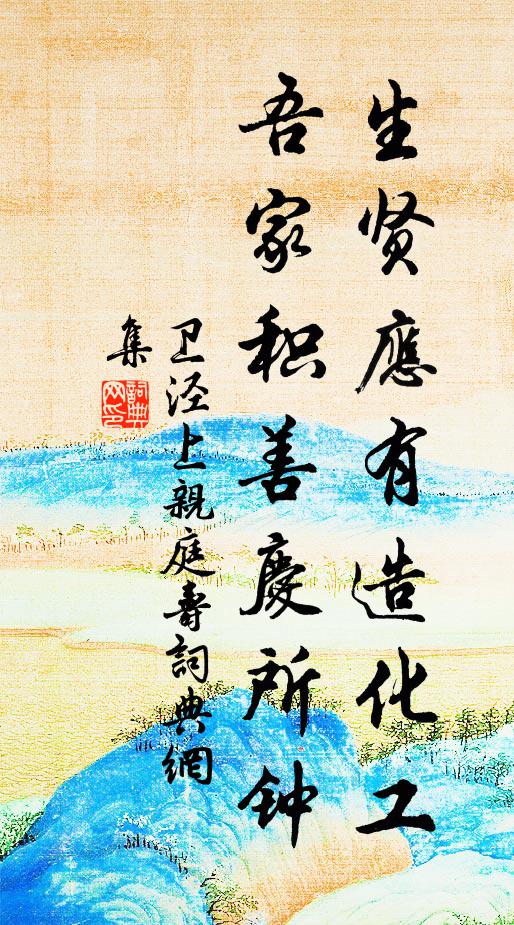 生贤應有造化工
吾家积善慶所钟
卫泾上親庭壽詞典網
集
詞典
网印